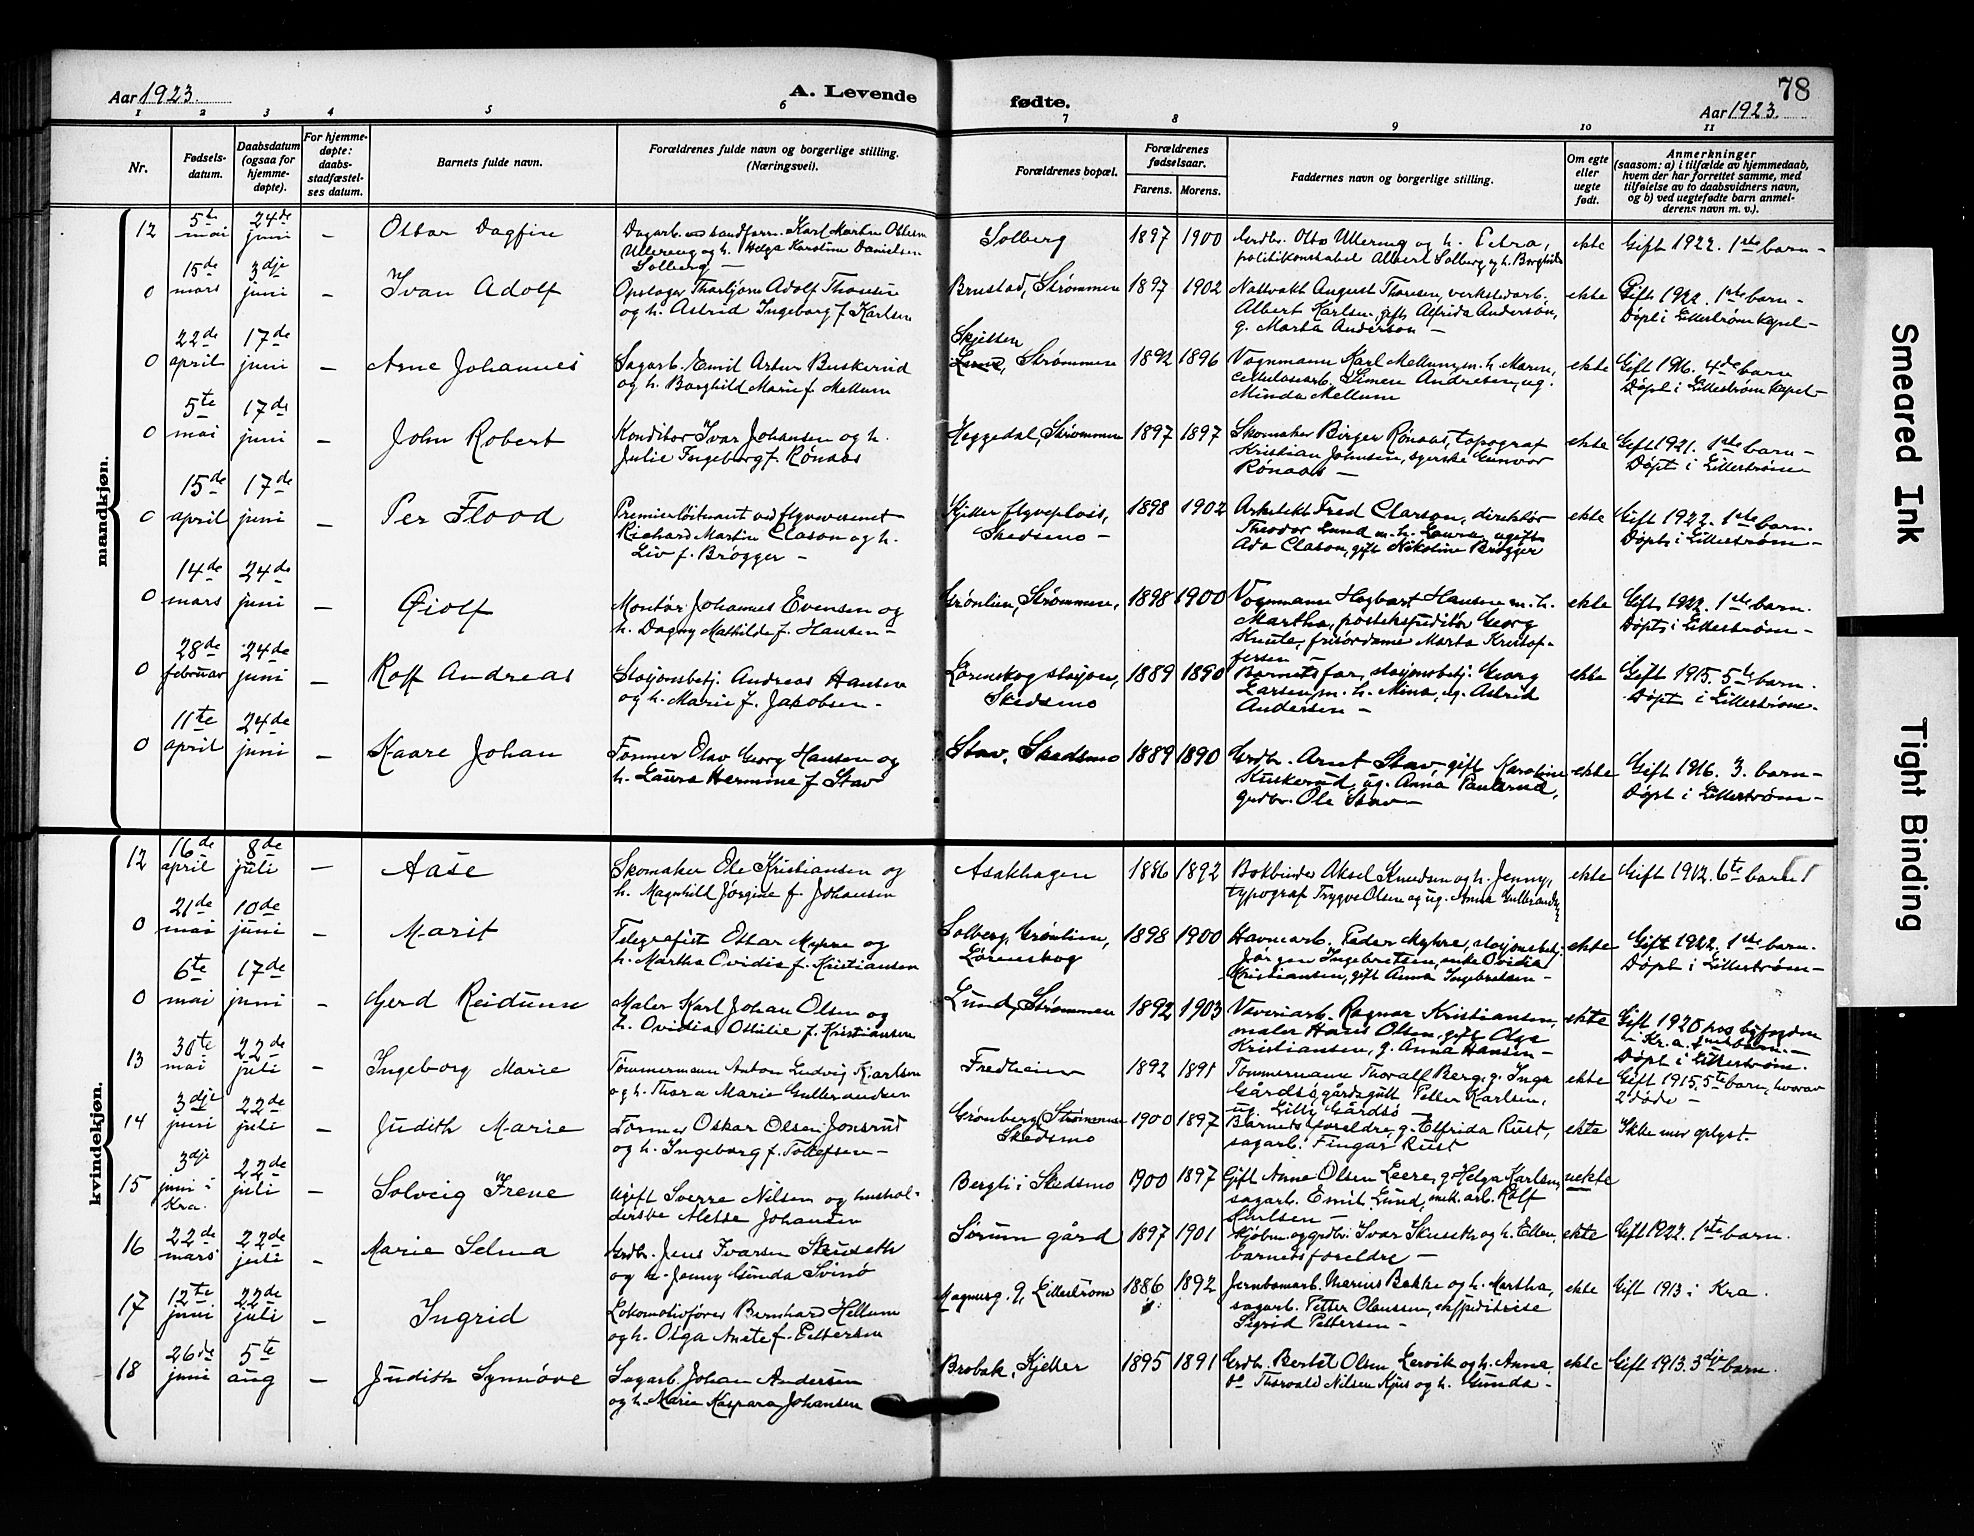 78
Aar 1923.
A. Levende
fødte.
Aar 1923.
1 2 3 4 5 6 7 8 9 10 11
Nr.
Fødsels-
datum.
Daabsdatum
(ogsaa for
hjemme-
døpte).
For hjemme-
døpte:
daabs-
stadfæstel-
ses datum.
Barnets fulde navn.
Forældrenes fulde navn og borgerlige stilling.
(Næringsvei).
Forældrenes bopæl.
Forældrenes
fødselsaar.
Farens. Morens.
Faddernes navn og borgerlige stilling.
Om egte
eller
uegte
født.
Anmerkninger
(saasom: a) i tilfælde av hjemmedaab,
hvem der har forrettet samme, med
tilføielse av to daabsvidners navn,
og b) ved uegtefødte barn anmel-
derens navn m. v.).
mandkjøn.
12 5te mai 24de juni – Ottar Dagfin
Karl Martin
Ullereng og h. Helga Karoline Danielsen
Solberg –
Solberg 1897 1900
Grdbr. Otto Ullereng og h. Petra,
politikonstabel Albert Solberg og h. Borghild
ekte
Gift 1922. 1ste barn –
0 15de mars 3dje juni – Ivan Adolf
Thorbjørn Adolf Thoresen
og h. Astrid Ingeborg f. Karlsen
Brustad, Strømmen 1897 1902
Nattvakt August Thoresen, verkstedarb.
Albert Karlsen, gift Alfrida Anderson,
g. Marta Anderson –
ekte
Gift 1922. 1ste barn –
Døpt i Lillestrøm kapel –
0 22de april 17de juni – Arne Johannes
Sagarb. Emil Artur Buskerud
og h. Borghild Marie f. Mellum
Skjetten
Strømmen 1892 1896
Vognmann Karl Mellum m. h. Maren,
Cellulosearb. Simen Andresen, ug.
Minda Mellum
ekte
Gift 1916. 4de barn
Døpt i Lillestrøm kapel –
0 5te mai 17de juni – John Robert
Konditor Ivar Johansen og h.
Julie Ingeborg f. Rönaas
Heggedal, Strømmen 1897 1897
Skomaker Birger Rönaas, topograf
Kristian Johnsen, syerske Gunvor
Rönaas –
ekte
Gift 1921. 1ste barn –
Døpt i Lillestrøm
0 15de april 17de juni – Per Flood
Premierløitnant ved flyvevesenet
Richard Martin Clason og h.
Liv f. Brøgger –
Kjeller flyveplass,
Skedsmo – 1898 1902
Arkitekt Fred Clason, direktör
Theodor Lund m. h. Laura, ugift
Ada Clason, gift Nikoline Brøgger
ekte
Gift 1922. 1ste barn.
Døpt i Lillestrøm –
0 14de mars 24de juni – Øiolf
Montör Johannes Evensen og
h. Dagny Mathilde f. Hansen –
Grönlien, Strømmen, 1898 1900
Vognmann Hagbart Hansen m. h.
Martha, postekspeditör Georg
Knutse, frisördame Marta Kristof-
fersen –
ekte
Gift 1922. 1ste barn.
Døpt i Lillestrøm –
0 28de februar 24de juni – Rolf Andreas
Stasjonsbetj. Andreas Hansen
og h. Marie f. Jakobsen –
Lørenskog stasjon,
Skedsmo 1889 1890
Barnets far, stasjonsbetj. Georg
Larsen m. h. Mina, ug. Astrid
Andersen –
ekte
Gift 1915. 5te barn.
Døpt i Lillestrøm –
0 11te april 24de juni Kaare Johan
Former Olav Georg Hansen og
h. Laura Hermine f. Stav
Stav, Skedsmo 1889 1890
Grdbr. Arnt Stav, gift Karoline
Kuskerud, ug. Anna Paulerud,
grdbr. Ole Stav –
ekte
Gift 1916. 3. barn –
Døpt i Lillestrøm –
kvindekjøn.
12 16de april 8de juli – Aase
Skomaker Ole Kristiansen og
h. Magnhild Jörgine f. Johansen
Asakhagen 1886 1892
Bokbinder Aksel Knudsen og h. Jenny,
typograf Trygve Olsen og ug. Anna
ekte
Gift 1912. 6te barn
0 21de mai 10de juni – Marit
Telegrafist Ottar Myhre og
h. Martha Ovidia f. Kristiansen
Solberg, Grönlien,
Lørenskog 1898 1900
Havnearb. Peder Myhre, stasjonsbetj.
Jörgen Ingebretsen, enke Ovidia
Kristiansen, gift Anna Ingebretsen –
ekte
Gift 1922. 1ste barn.
Døpt i Lillestrøm –
0 6te mai 17de juni – Gerd Reidunn
Maler Karl Johan Olsen og
h. Ovidia Ottilie f. Kristiansen
Lund, Strømmen 1892 1903
Væveriarb. Ragnar Kristiansen,
maler Hans Olsen, gift Olga
Kristiansen, g. Anna Hansen –
ekte
Gift 1920 hos byfogden
i Kr.a.
Døpt i Lillestrøm.
13 30te mai 22de juli – Ingeborg Marie
Tömmermann Anton Ludvig Karlsen
og h. Thora Marie Gulbrandsen
Fredheim 1892 1891
Tömmermann Thoralf Berg, g. Inga
Gårdsö, gårdsgutt Petter Karlsen,
ug. Lilly Gårdsö –
ekte
Gift 1915. 5te barn, hvorav
2 döde –
14 3dje juni 22de juli – Judith Marie
Former Oskar Olsen Jonsrud
og h. Ingeborg f. Tollefsen –
Grönberg, Strømmen
Skedsmo 1900 1897
Barnets foreldre, g. Elfrida Rust,
sagarb. Fingar Rust
ekte
Ikke mer oplyst.
15 3dje juni i Kra. 22de juli – Solveig Irene
Ugift Sverre Nilsen og hushol-
derske Alette Johansen
Bergli i Skedsmo 1900 1897
Gift Anne Olsen Leere, g. Helga Karlsen,
sagarb. Emil Lund, mek. arb. Rolf
Karlsen –
uekte
16 22de mars 22de juli – Marie Selma
Grdbr. Jens Ivarsen Skuseth
og h. Jenny Gunda Svinö
Sörum gård 1897 1901
Kjöbm. og grdbr. Ivar Skuseth og h. Ellen,
barnets foreldre –
ekte
Gift 1922. 1ste barn.
17 12te juni 22de juli – Ingrid
Lokomotivförer Bernhard Hellum
og h. Olga Anete f. Pettersen
Magnusg. 9, Lilleström 1886 1892
Jernbanearb. Marius Bakke og h. Martha,
sagarb. Petter Olaussen, ekspeditrise
Sigrid Pettersen –
ekte
Gift 1913 i Kra.
18 26de juni 5te aug – Judith Synnöve
Sagarb. Johan Andersen
og h. Marie Kaspara Johansen
Brobak, Kjeller 1895 1891
Grdb. Bertel Olsen Lervik og h. Anna,
do Thorvald Nilsen Kjus og h. Gunda –
ekte
Gift 1913. 3dje barn.
Smeared Ink
Tight Binding